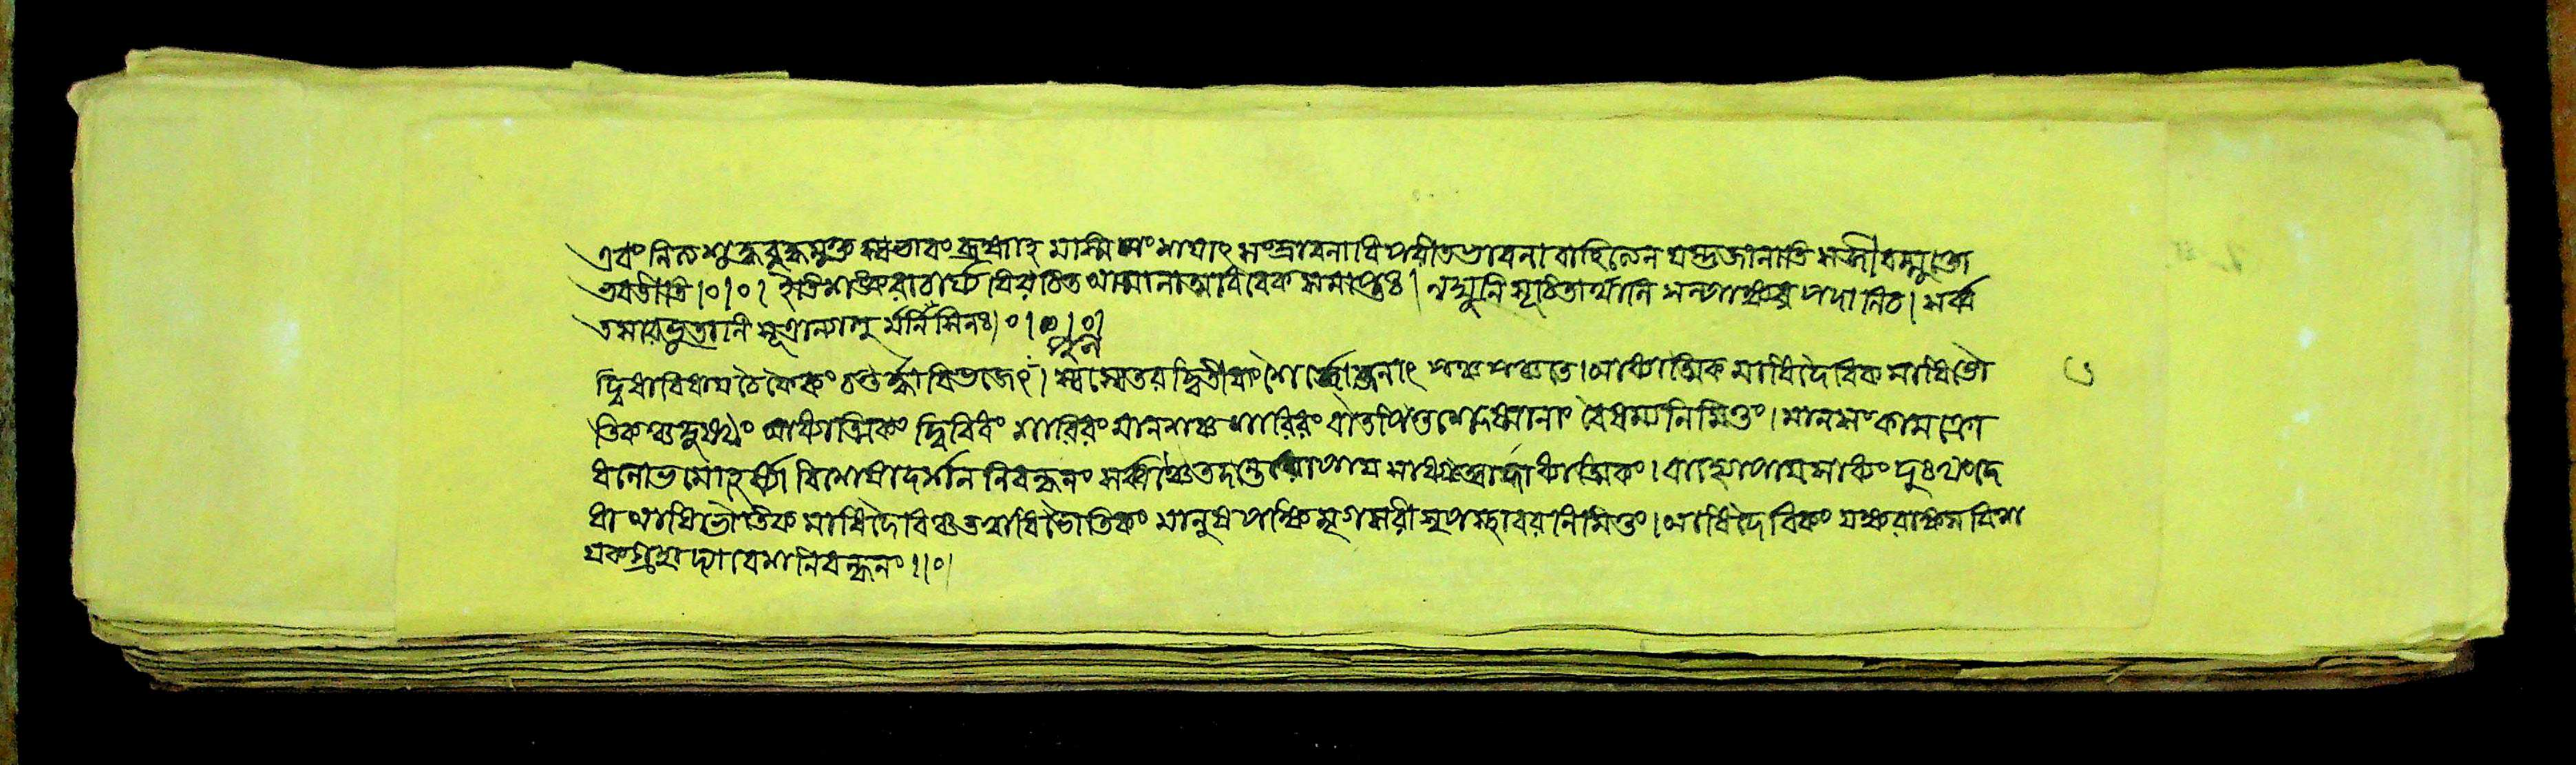 এবং নিত্যশুদ্ধবুদ্ধমুক্ত স্বভাবং ব্রহ্মাহ মাস্মি সংশয়াৎ সংভাবনাবিপরীতভাবনা বাহিত্যেন যস্তুজানাতি সজীবন্মুক্তো
ভবতীতি।০।০। ইতিশঙ্করাচার্য্য বিরচিত আত্মানাত্মবিবেক সমাপ্তঃ। লঘুনি সূচিতার্থানি স্বল্পাক্ষর পদানিচ। সর্ব্ব
তঃসারভূতানি সূত্রান্যাহু র্মনীষিনঃ।০।০।০।
দ্বিধাবিধায় চৈকৈকং চতুর্দ্ধা বিভজেৎ। স্বস্বেতর দ্বিতীয়াংশৈ র্যোজনাৎ পঞ্চ পঞ্চতে। আধ্যাত্মিক মাধিদৈবিক মাধিভৌ
তিকঞ্চ দুঃখং আধ্যাত্মিকং দ্বিবিধং শারিরং মানসঞ্চ শারিরং বাতপিত্তশ্লেষ্মানাং বৈষম্যনিমিত্তং। মানসং কামক্রো
ধলোভমোহ বিষাদর্শন নিবন্ধনং সর্ব্বঞ্চৈতদন্তরোপায় সাধ্যত্বাদাধ্যাত্মিকং। বাহ্যোপায়সাধ্যং দুঃখংদ্বে
ধা আধিভৌতিক মাধিদৈবিকঞ্চ তত্রাধিভৌতিকং মানুষ পক্ষি মৃগ সরীসৃপ স্থাবর নিমিত্তং। আধিদৈবিকং যক্ষরাক্ষস বিনা
য়কগ্রহাদ্যাবেশনিবন্ধনং।।০।